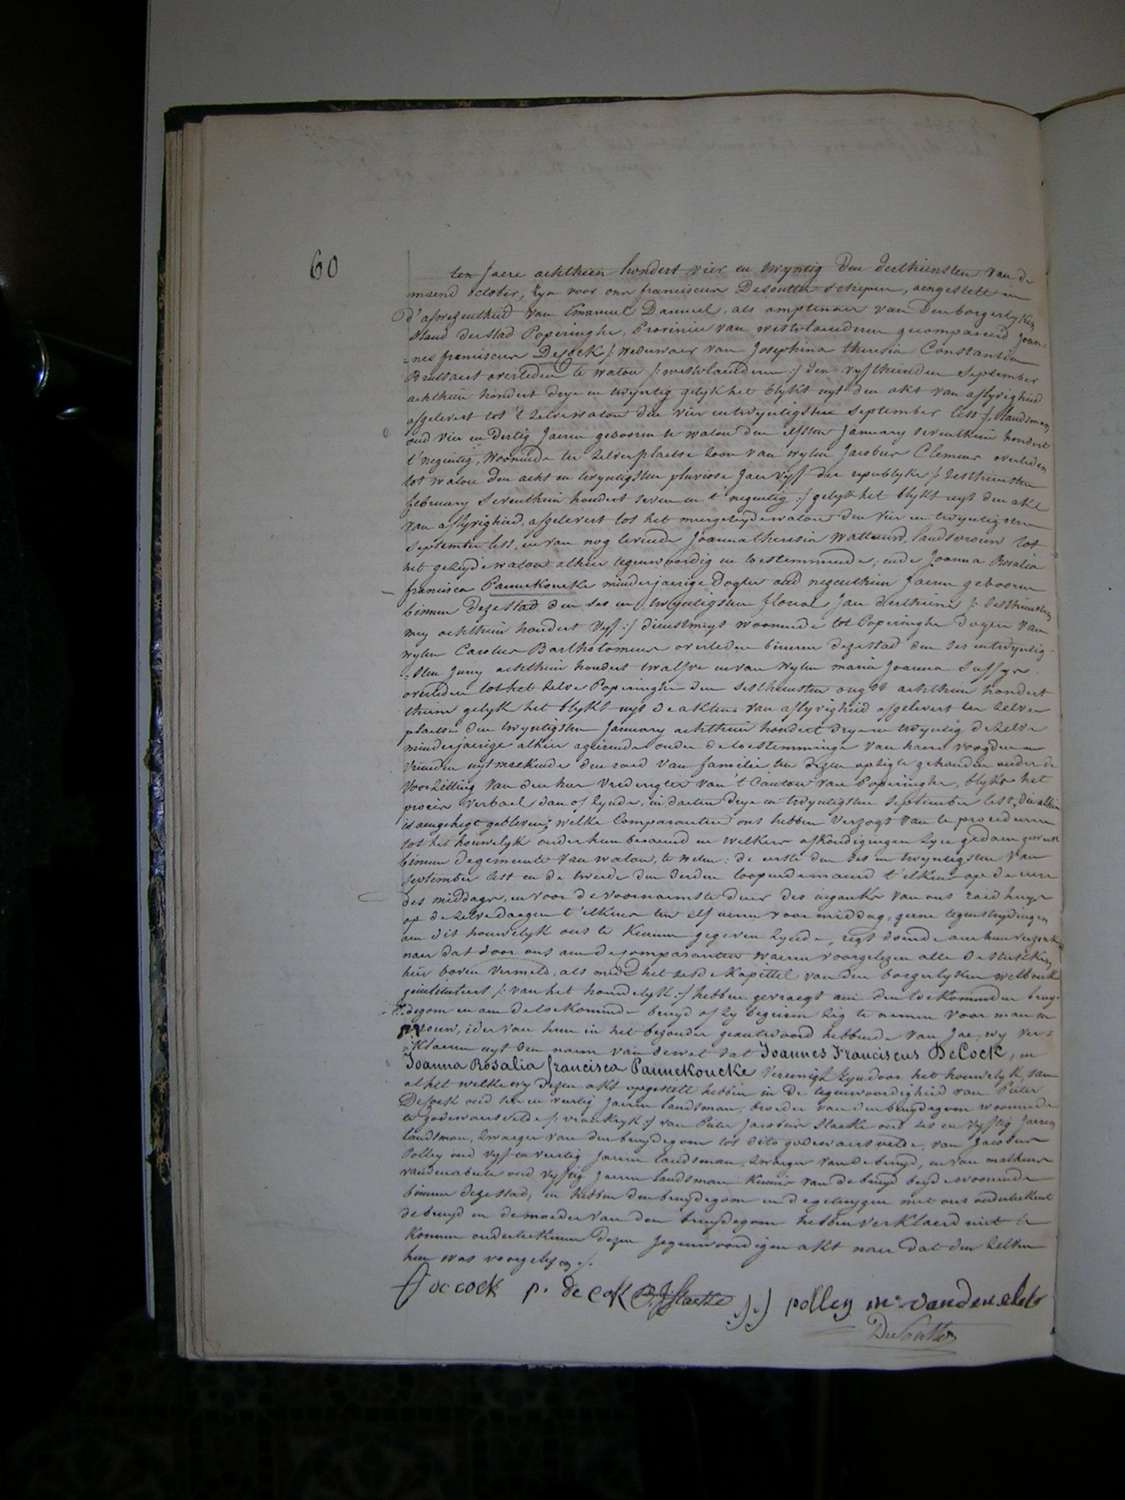 60
ten jaere achthien hondert vier en twyntig den derthiensten van de
maend october, zyn voor ons franciscus Desoutter schepen, aengestelt in
d'afwezentheid van Emanuel Dauwel, als amptenaer van den borgerlyken
stand der stad Poperinghe, Provincie van westvlaenderen gecompareerd Joan-
nes franciscus DeCock /: weduwaer van Josephina theresia Constantia
overleden te watou /: westvlaenderen :/ den vyfthienden September
achthien hondert drye en twyntig gelyk het blykt uyt den akt van aflyvigheid
afgelevert tot 't zelve watou den vier en twyntigsten september lest /: landsman
oud vier en dertig Jaeren gebooren te watou den elfsten January seventhien hondert
t'negentig, woonende ter zelver plaetse zoon van wylen Jacobus Clemens overleden
tot watou den acht en twyntigsten pluviose Jaer vyf der republyke /: sesthiensten
february seventhien hondert seven en t'negentig :/ gelyk het blykt uyt den akt
van aflyvigheid, afgelevert tot het meergeseyde watou den vier en twyntigsten
september lest, en van nog levende Joanna theresia landsvrouw tot
het gezeyde watou alhier tegenwoordig en toestemmende; ende Joanna Rosalia
francisca Pannekoucke minderjaerige dogter oud negenthien Jaeren gebooren
binnen deze stad den ses en twyntigsten floreal Jaer derthiene /: sesthiensten
mey achthien hondert vyf :/ dienstmeyt woonende tot Poperinghe dogter van
wylen Carolus Bartholomeus overleden binnen deze stad den ses en twyntig-
sten Juny achthien hondert twaelfve en van wylen maria Joanna
overleden tot het zelve Poperinghe den sesthiensten ougst achthien hondert
thien gelyk het blykt uyt de akten van aflyvigheid afgelevert ter zelver
plaetse den twyntigsten January achthien hondert drye en twyntig dezelve
minderjaerige alhier ageirende onder de toestemminge van haere voogden en
vrienden uytmaekende den raed van familie ten dezen opzigte gehouden onder de
voorzitting van den heer vrederegter van 't Canton van Poperinghe, blyks het
proces verbael daer of zynde, in daeten drye en twyntigsten september lest, die alhier
is aengehegt gebleven; welke Comparanten ons hebben verzogt van te procederen
tot het houwelyk onder hun beraemd en welkers afkondigingen zyn gedaen geweest
binnen de gemeente van watou, te weten: de eerste den ses en twyntigsten van
september lest en de tweede den derden loopende maend t'elkens op de uere
des middags, en voor de voornaemste deur des inganks van ons raedhuys
op de zelve daegen t'elkens ten elf ueren voor middag; geene tegenstrydingen
aen dit houwelyk ons te kennen gegeven zynde, regt doende aen hun verzoek
naer dat door ons aen de comparanten waeren voorgelezen alle de stukken
hier boven vermeld, als mede het sesde kapittel van den borgerlyken wetboek
geintituleert /: van het houwelyk :/ hebben gevraegt aen den toekomenden bruy-
degom en aen de toekomende bruyd of zy begeiren zig te nemen voor man en
vrouw, ider van hun in het bezonder geantwoord hebbende van Jae, wy ver-
klaeren uyt den naem van de wet dat Joannes Franciscus DeCock, en
Joanna Rosalia francisca Pannekoucke vereenigt zyn door het houwelyk, van
al het welke wy dezen akt opgestelt hebben in de tegenwoordigheid van Pieter
DeCock oud ses en veertig Jaeren landsman, broeder van den bruydegom woonende
te godewaersvelde /: vrankryk :/ van Pieter Jacobus Staelke oud ses en vyftig Jaeren
landsman, zwaeger van den bruydegom tot dito godewaersvelde, van Jacobus
Polley oud vyf en veertig Jaeren landsman, zwaeger van de bruyd, en van matheus
vandenabeele oud vyftig Jaeren landsman kennis van de bruyd beyde woonende
binnen deze stad, en hebben den bruydegom en de getuygen met ons onderteekent
de bruyd en de moeder van den bruydegom hebben verklaerd niet te
konnen onderteekenen dezen jegenwoordigen akt naer dat den zelven
hun was voorgelezen ./.
f de cock p. de Cok P.J Staelke j. j polley m. vanden abele
DeSoutter